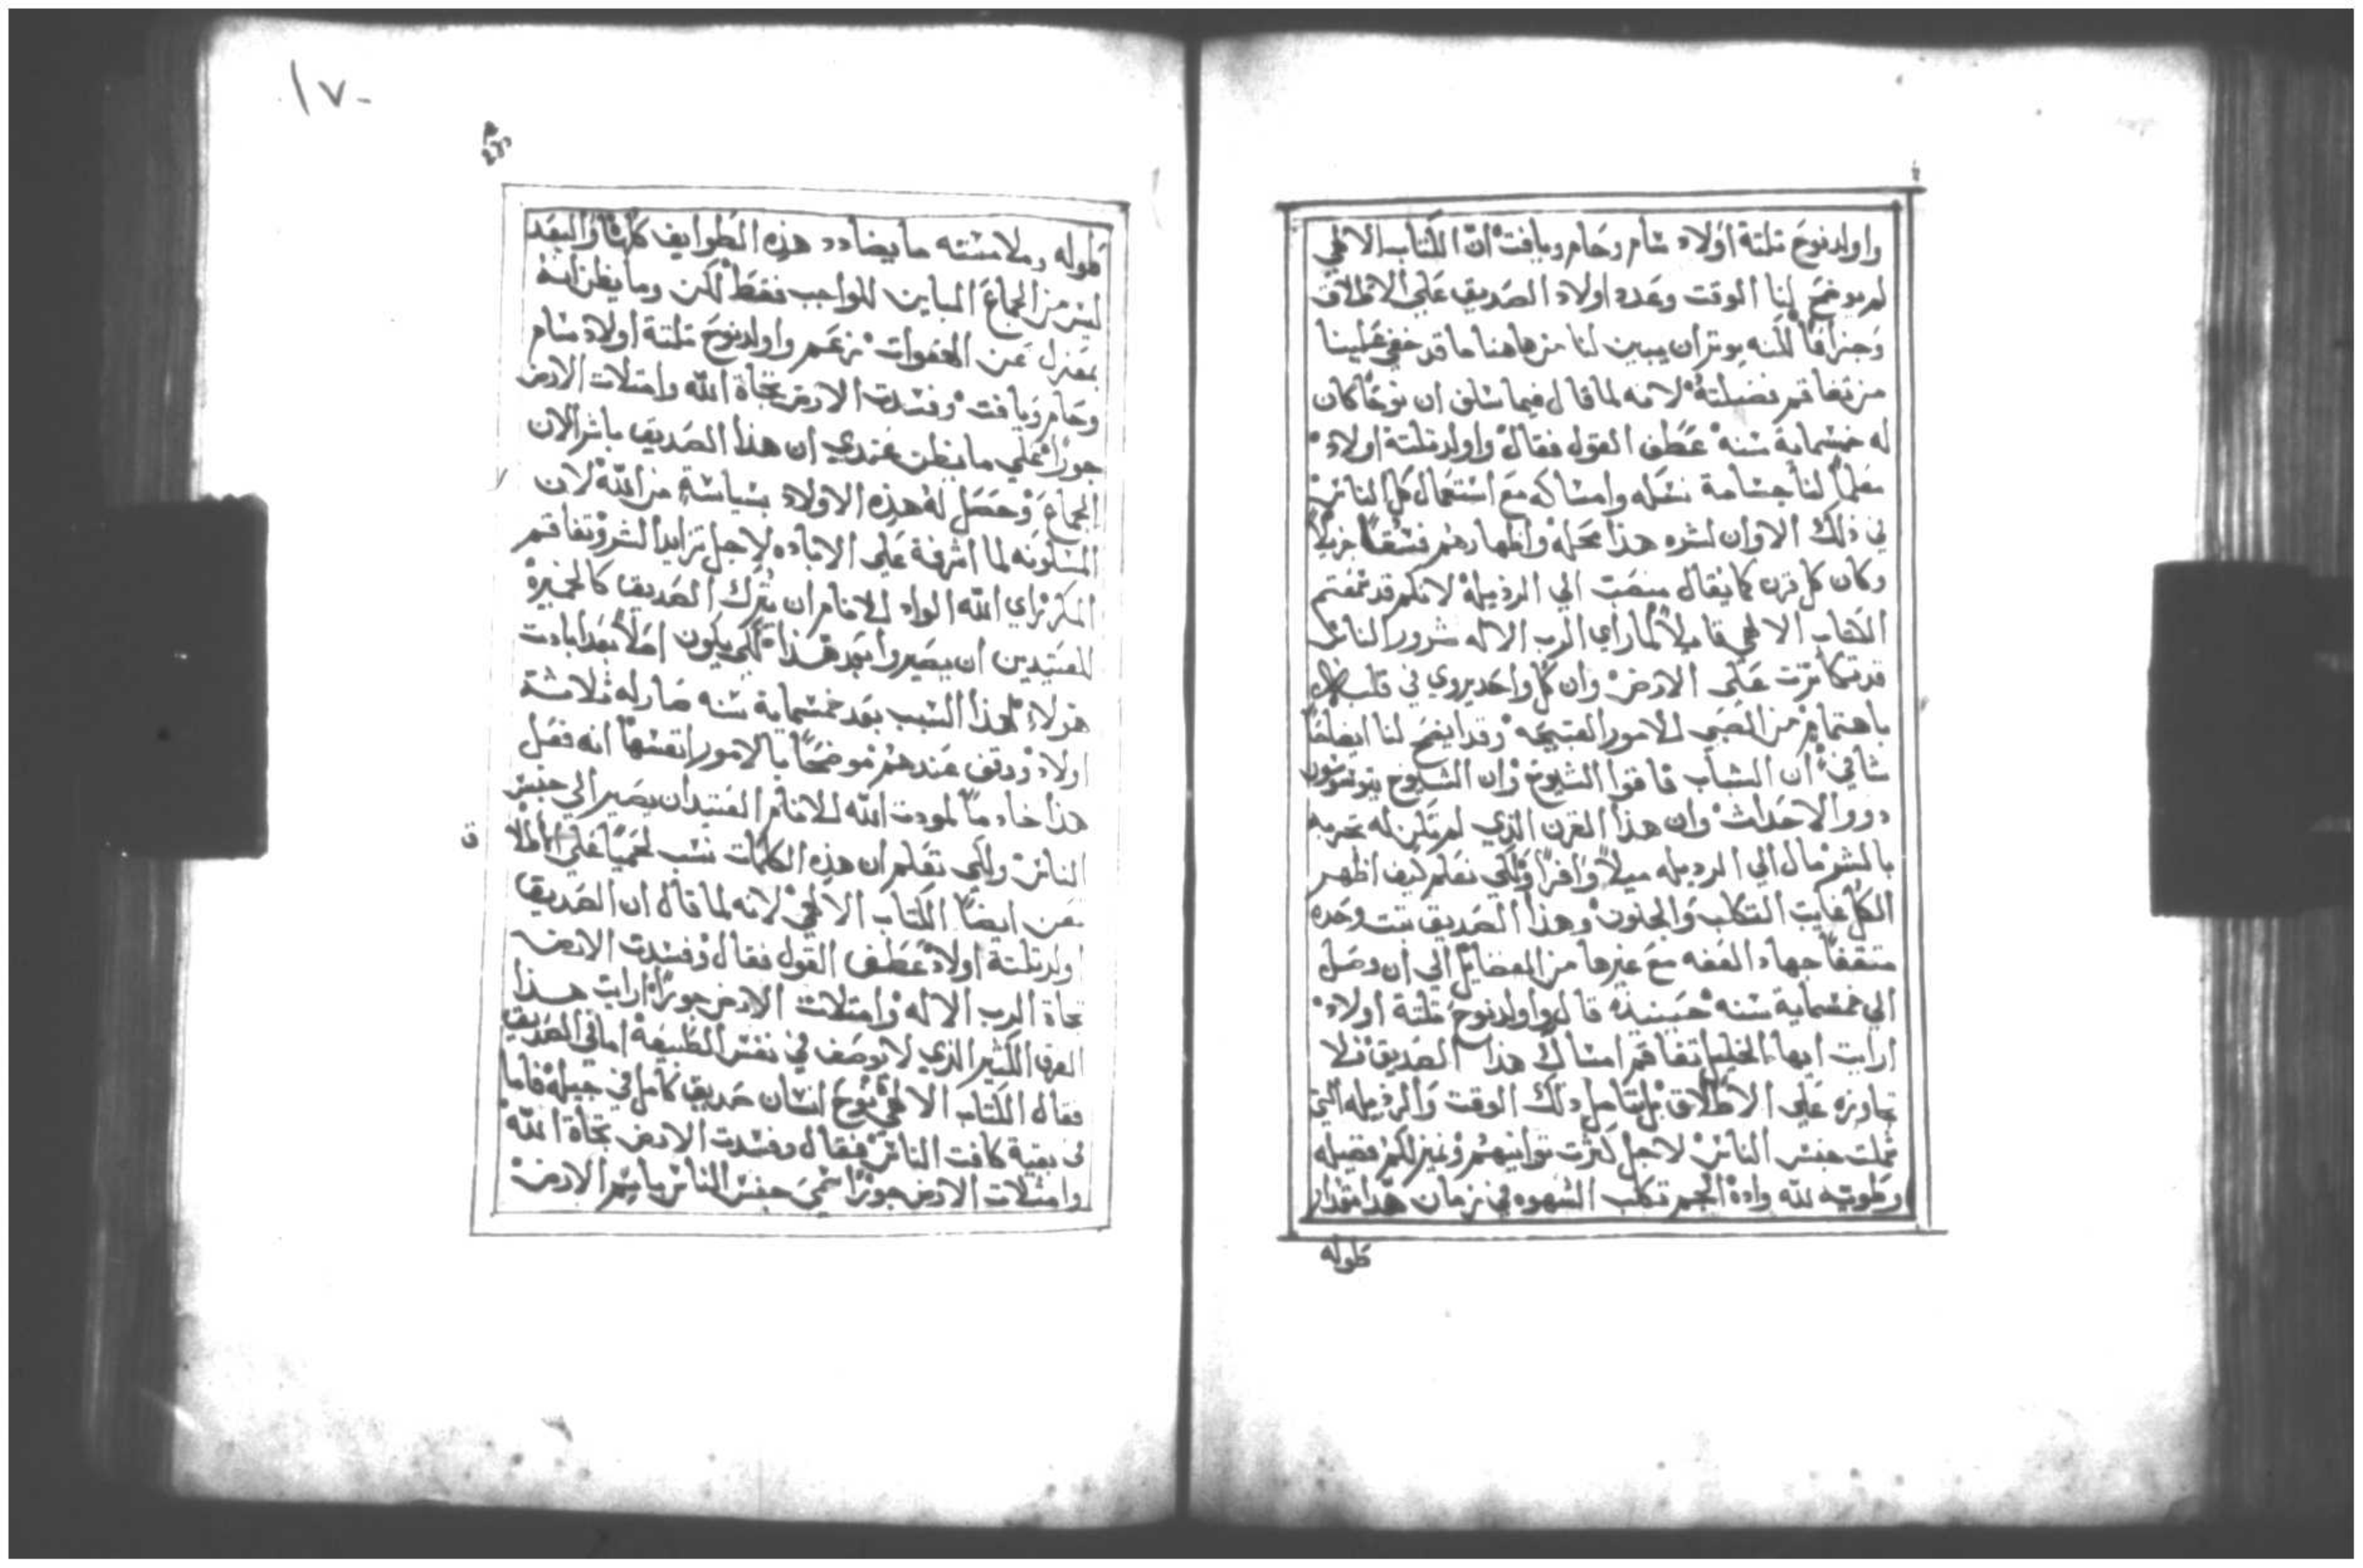 واولد نوح تلتة اولاد سام وحام ويافت ان الكتاب الالهي
لم يوضح لنا الوقت وعدد اولاد الصديق علي الاطلاق
وجزافا لكنه يوتران يبين لنا من هاهنا ما قد خفي علينا
من تفاقم فضيلته لانه لما قال فيما سلف ان نوحا كان
له خمسماية سنه عطف القول فقال واولد تلتة اولاد
معلما لنا جسامة نسكه وامساكه مع استعمال كل الناس
في ذلك الاوان لشره هذا محله واظهارهم فسقا جزيلا
وكان كل قرن كما يقال منصب الي الرذيله لانكم قد سمعتم
الكتاب الالهي قايلا لما راي الرب الاله شرور الناس
قد تكاترت علي الارض وان كل واحد يروي في قلبه
باهتمام من الصبي للامور القبيحه وقد ايضح لنا ايضاحا
شافي ان الشاب فاقوا الشيوخ وان الشيوخ يتوقون
ذوو الاحداث وان هذا القرن الذي لم تكن له تجربه
بالشر مال الي الرديله ميلا وافرا ولكي نعلم كيف اظهر
الكل غايت التكلب والجنون وهذا الصديق تبت وحده
متقفا جهاد العفه مع غيرها من الفضايل الي ان وصل
الي خمسماية سنه حينيذه قال واولد نوح تلتة اولاد
ارايت ايها الخليل تفاقم امساك هذا الصديق فلا
تجاوزه علي الاطلاق بل تامل ذلك الوقت والرذيله التي
شملت جنس الناس لاجل كثرت توانيهم وغيز لكم فضيله
وطوبته لله واده الجم تكلب الشهوه في زمان هذا مقدار
طوله
١٧٠
طوله وملامسته ما يضادد هذه الطوايف كلها والبعد
ليس من الجماع المباين للواجب فقط لكن وما يظن انه
بمعزل عن الهفوات زعم واولد نوح تلتة اولاد سام
وحام ويافت وفسدت الارض تجاة الله وامتلات الارض
جورا علي ما يظن عندي ان هذا الصديق باشر الان
الجماع وحصل له هذه الاولاد بسياسة من الله لان
المسكونه لما اشرفة علي الاباده لاجل تزايد الشر وتفاقم
المكر راي الله الواد للانام ان يترك الصديق كالخميرة
للعتيدين ان يصيروا بعد هذا لكي يكون اصلا بعد ابادت
هولاء لهذا السبب بعد خمسماية سنه صار له ثلاثة
اولاد ووقف عندهم موضحا بالامور انفسها انه فعل
هذا خادما لمودت الله للانام العتيدان يصير الي جنس
الناس ولكي تعلم ان هذه الكلمات نسب تخمينا علي
ايضا الكتاب الالهي لانه لما قال ان الصديق
اولد تلتة اولاد عطف القول فقال وفسدت الارض
تجاة الرب الاله وامتلات الارض جورا ارايت هذا
الفرق الكثير الذي لا يوصف في نفس الطبيعة اما في الصديق
فقال الكتاب الالهي نوح انسان صديق كامل في جيله فاما
في بقية كافت الناس فقال وفسدت الارض تجاة الله
وامتلات الارض جورا سمي جنس الناس باسم الارض